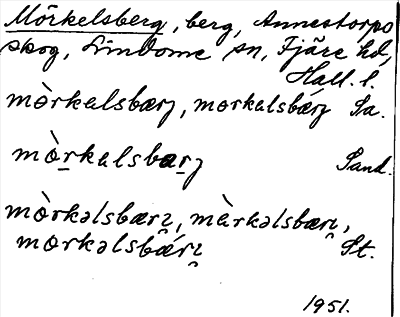 Mörkelsberg, berg, Annestorps
skog, Lindome sn, Fjäre hd,
Hall. l.
mòrkəlsbærj, morkəlsbǽrj Sa.
mòrkəlsbærj Sand.
mòrkəlsbærɩ, mòrkəlsbærɩ,
morkəlsbǽrɩ St.
1951.